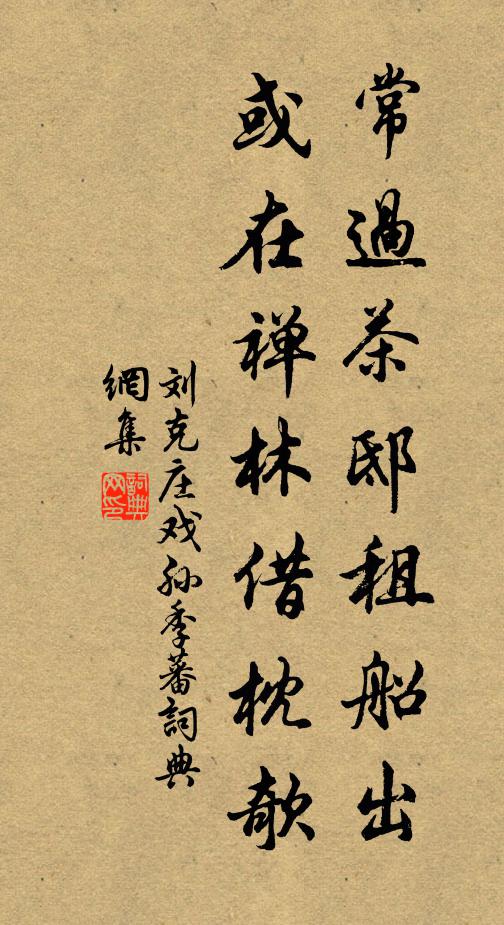 常過茶邸租船出
或在禅林借枕欹
刘克庄戏孙季蕃詞典
網集
詞典
网印